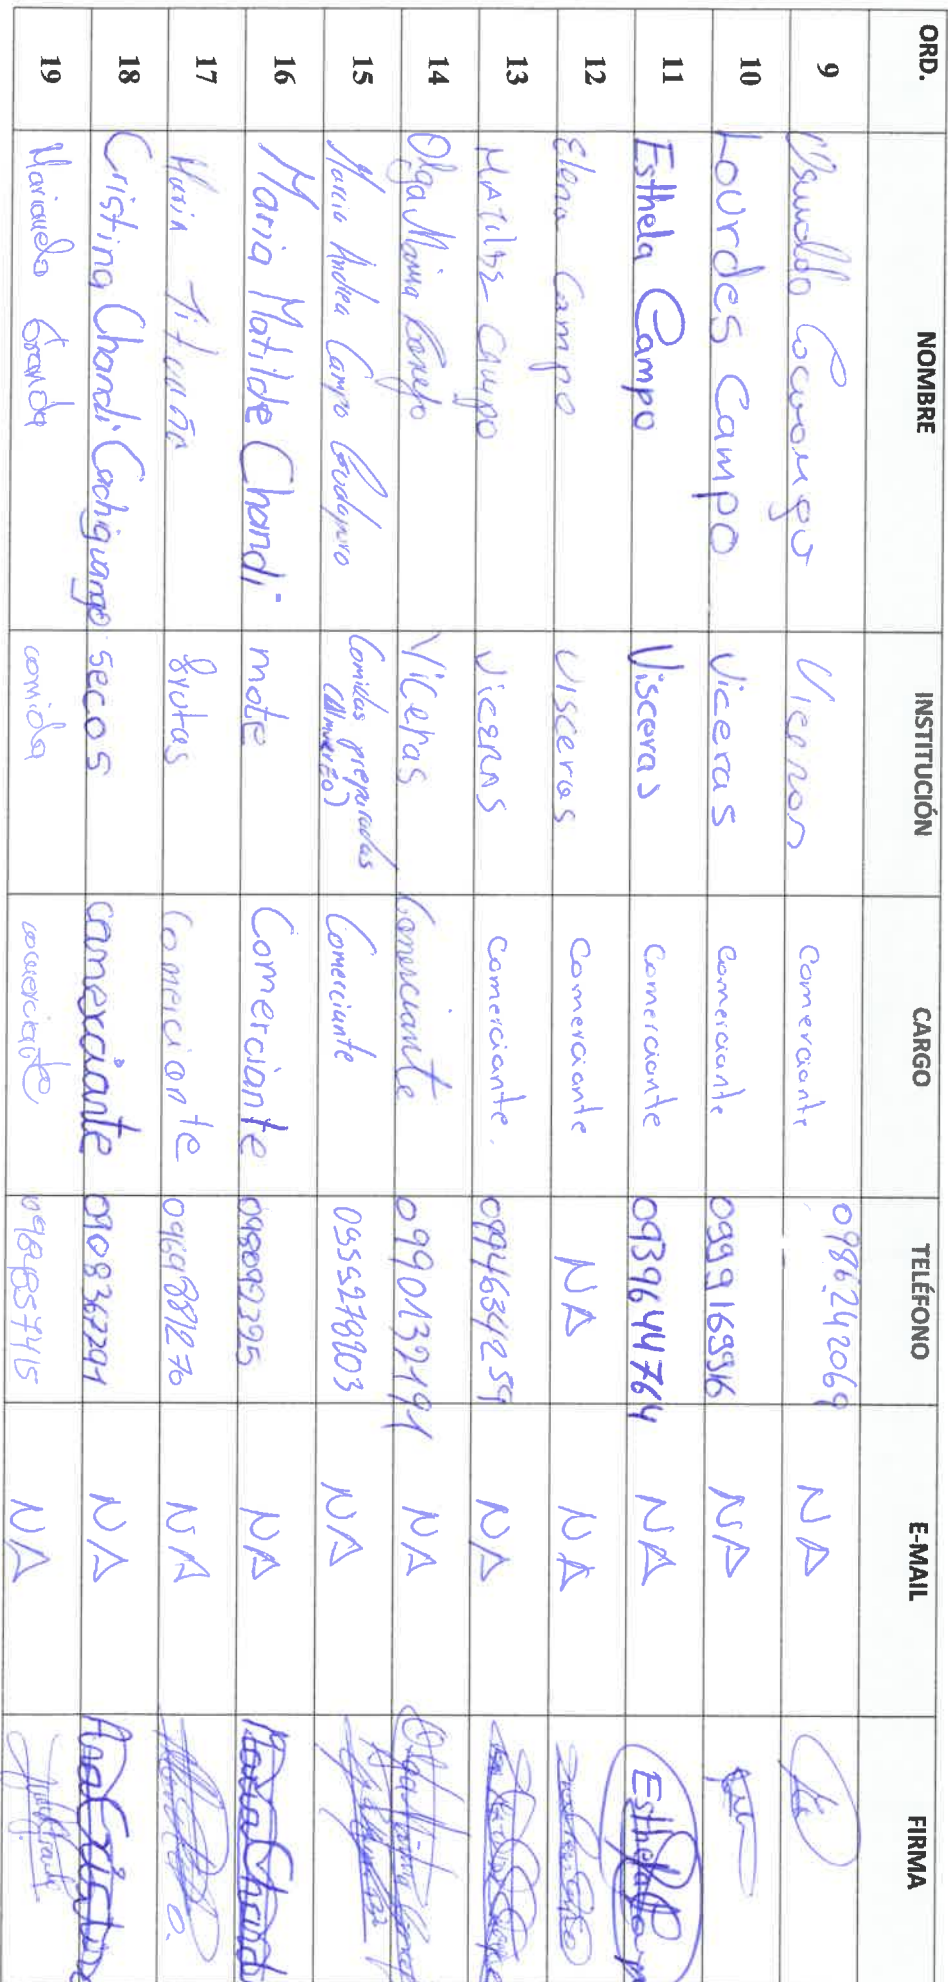 ORD. NOMBRE INSTITUCIÓN CARGO TELÉFONO E-MAIL FIRMA
9 Viceras Comerciante 0986242069 NA
10 Lourdes Campo Viceras Comerciante 0999169916 NA
11 Esthela Campo Visceras Comerciante 0939644764 NA Esthela Camp
12 Elena Campo Visceras Comerciante NA NA
13 MATILDE Campo Viceras Comerciante. 0994634259 NA
14 Olga Maria Viceras Comerciante 0990132191 NA
15 Maria Andrea Campo Comidas preparadas
(Almuerzo) Comerciante 0959278203 NA
16 Maria Matilde Chandi mote Comerciante 0980992395 NA Maria Chandi
17 Maria frutas Comerciante 0969881270 NA
18 Cristina Chandi Cachiguango secos comerciante 0908362291 NA
19 Marianela Granda comida comerciante 0984857415 NA